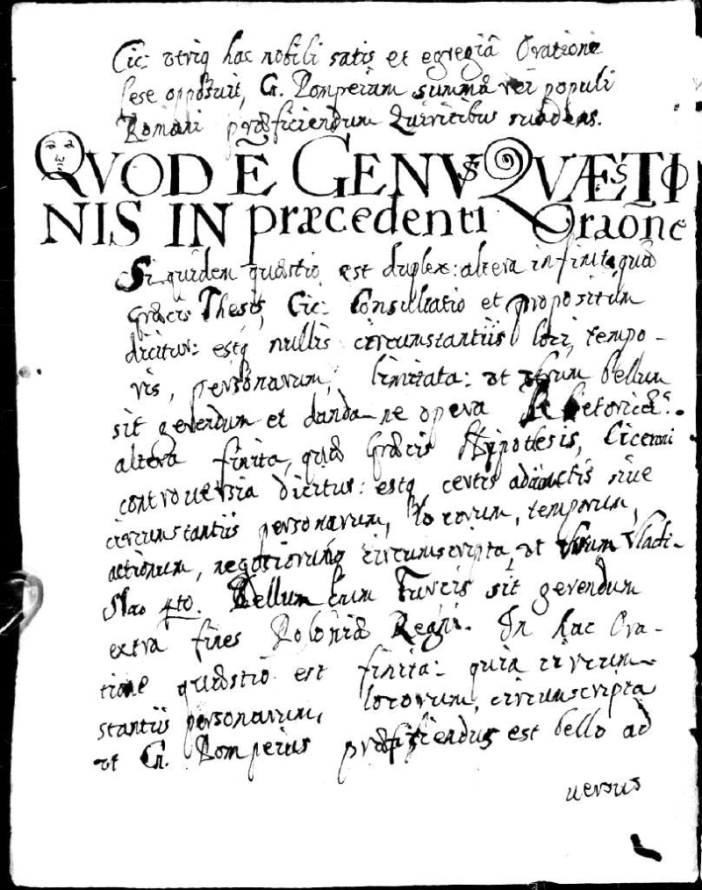 Cic: vtriq hac nobili satis et egregiâ Oratione
sese opposuit, G. Pompeium summæ rei populi
Romani præficiendum Quiritibus suadens.
QVOD Ē GENVS QVÆSTIO
NIS IN præcedenti Oraōne
Siquidem quæstio est duplex: altera infinita, quæ
græcis Thesis, Cic: Consultatio et propositum
dicitur: estq nullis circumstantiis loci, tempo-
ris, personarum, limitata: vt vtrum bellum
sit gerendum et danda ne opera Rhetoricæ.
altera finita, quæ græcis Hipothesis, Ciceroni
controuersia dicitur: estq certis adiunctis siue
circumstantiis personarum, locorum, temporum,
actionum, negotiorumq circumscripta, vt vtrum Vladi-
slao 4to. Bellum cum Turcis sit gerendum
extra fines Poloniæ Regni. In hac Ora-
tione quæstio est finita: quia circum-
stantiis personarum, locorum, circumscripta
vt G. Pompeius præficiendus est bello ad
uersus